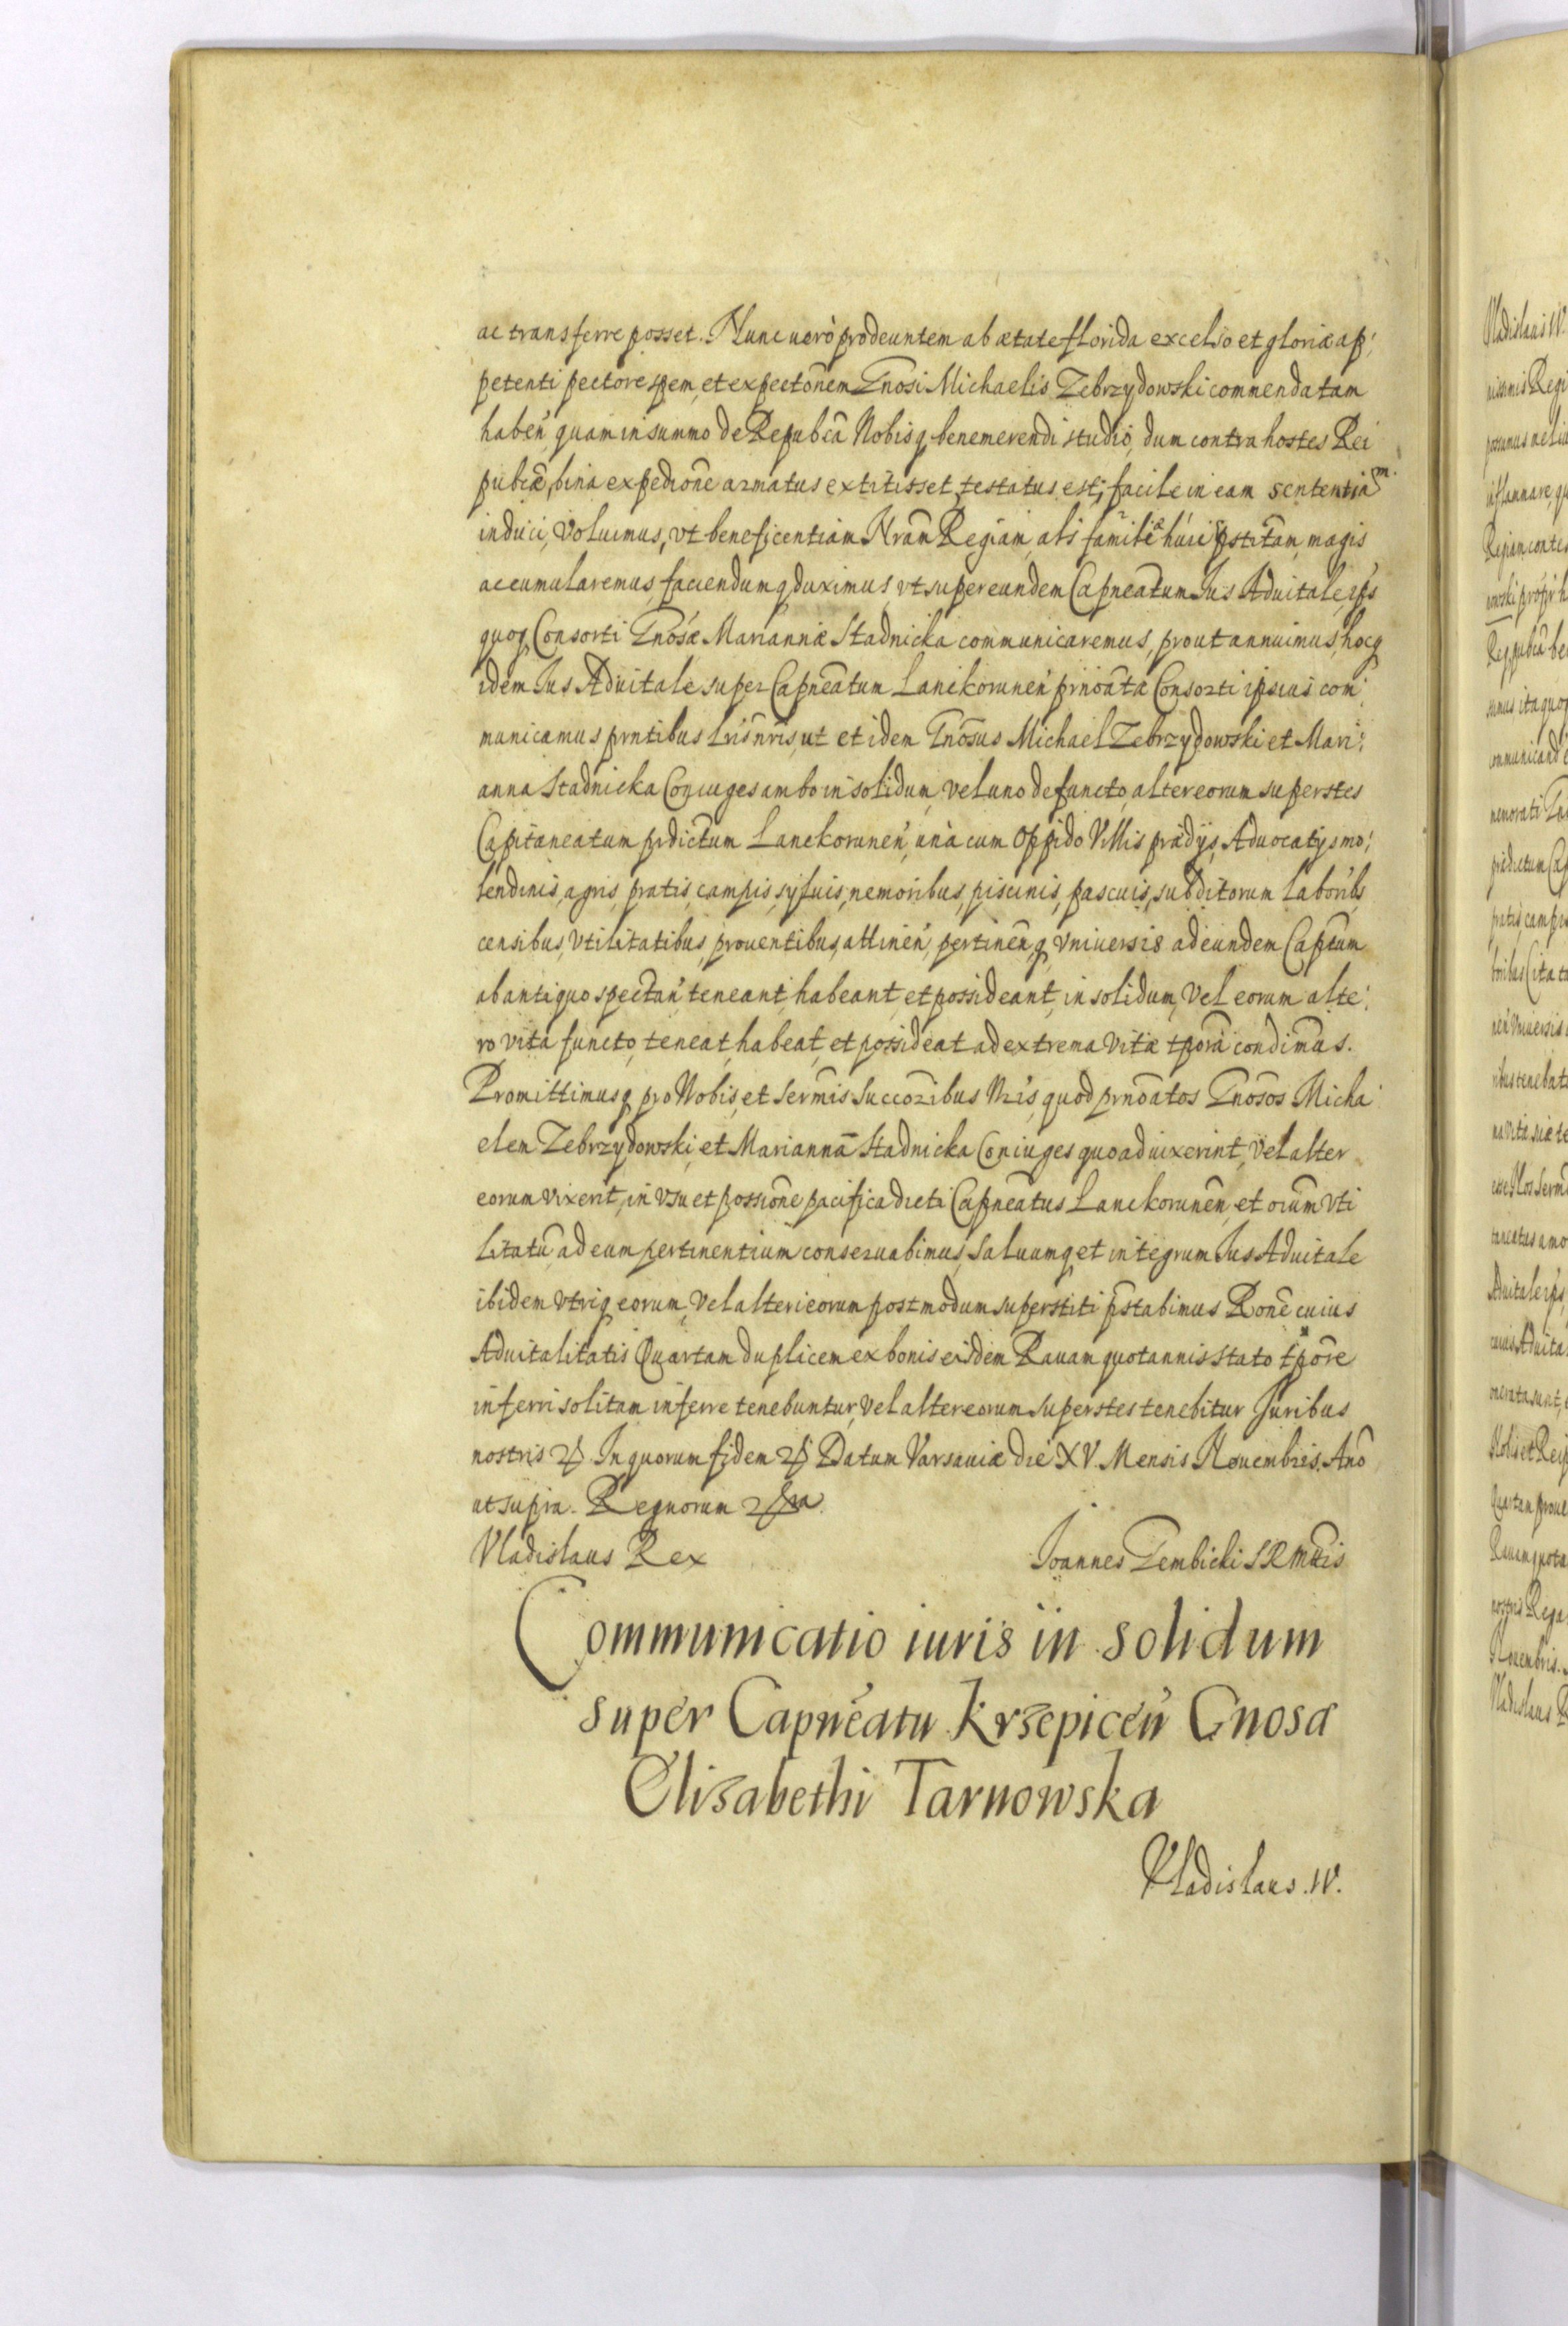 ac transferre posset. Nunc uerò prodeuntem ab ætate florida excelso et gloriæ ap:
petenti pectore spem, et expectõnem Gnosi Michaelis Zebrzydowski commendatam
habeń, quam in summo de Repubcã Nobisq benemerendi studio, dum contra hostes Rei
pubcæ, bina expedionẽ armatus extitisset, testatus est; facile in eam sententiam
induci, Voluimus, vt beneficentiam Nrãm Regiam, alś familiæ huic pstitam, magis
accumularemus, faciendumq duximus, vt super eundem Capneatum Jus Aduitale, ipś
quoq Consorti Gnosæ Mariannæ Stadnicka communicaremus, prout annuimus, hocq
idem Jus Aduitale super Capneãtum Lanckoruneń prnoãtæ Consorti ipsius com:
municamus prntibus Lris nris, ut et idem Gnõsus Michael Zebrzydowski et Mari:
anna Stadnicka Coniuges ambo in solidum, vel uno defuncto, alter eorum superstes
Capitaneatum prdictum Lanckoruneń, unà cum Oppido Villis prædys, Aduocatys mo:
lendinis, agris, pratis, campis, syluis, nemoribus, piscinis, pascuis, subditorum laboribs
censibus, Vtilitatibus, prouentibus, attineń, pertineńq Vniuersis ad eundem Captum
ab antiquo spectań, teneant, habeant, et possideant, in solidum, Vel eorum alte:
ro vita functo, teneat, habeat, et possideat ad extrema Vitæ tpora condimãs.
Promittimusq pro Nobis, et Sermis Succoribus Nris, quod prnoãtos Gnõsos Micha
elem Zebrzydowski, et Mariannã Stadnicka Coniuges quoad uixerint, Vel alter
eorum vixerit, in Vsu et possione pacifica dicti Capneãtus Lanckoruneń, et oium Vti
litatũ ad eum pertinentium conseruabimus, Saluumq et integrum Jus Aduitale
ibidem vtriq eorum, Vel alteri eorum postmodum superstiti pstabimus Ronẽ cuius
Aduitalitatis Quartam duplicem ex bonis eisdem Rauam quotannis stato tpõre
inferri solitam inferre tenebuntur, Vel alter eorum Superstes tenebitur Juribus
nostris &. In quorum fidem & Datum Varsauiæ die XV. Mensis Nouembris. Anõ
ut supra. Regnorum &ra.
Vladislaus Rex Joannes Gembicki S R Mttis
Communicatio iuris in solidum
super Capneatu Krzepiceń Gnosa
Elisabethi Tarnowska
Vladislaus .IV.